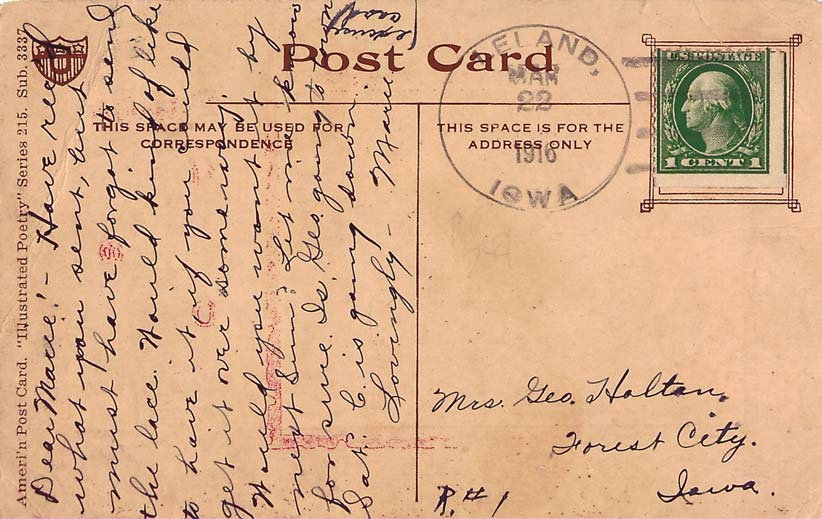 Post Card
THIS SPACE MAY BE USED FOR
CORRESPONDENCE
THIS SPACE IS FOR THE
ADDRESS ONLY
LELAND,
MAR
22
1916
IOWA
U.S. POSTAGE
1 CENT 1
Ameri'n Post Card. "Illustrated Poetry" Series 215, Sub. 3337
Dear Marie! - Have rec'd
what you sent, but
must have forgot to send
the lace. Would kind of like
to have it if you could
get it over someway.
Would you want it by
next Sun? Let me know
for sure. Is Geo going to
Sat. C is going down.
Lovingly - Marie
Mrs. Geo. Holtan.
Forest City.
Iowa.
R.#1